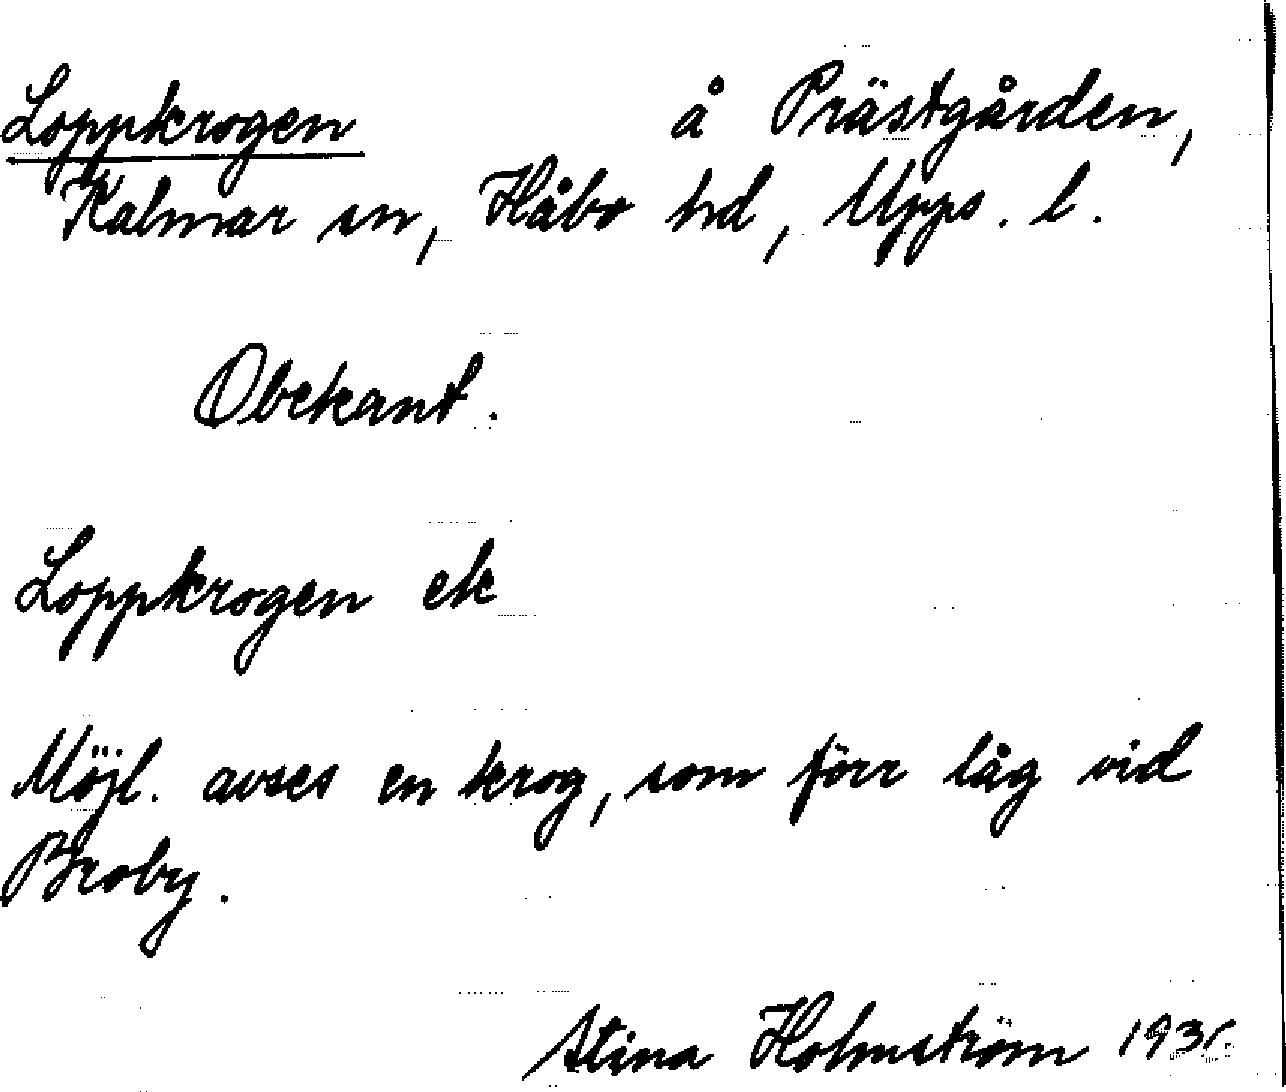 Loppkrogen å Prästgården,
Kalmar sn, Håbo hd, Upps. l.
Obekant.
Loppkrogen ek
Möjl. avses en krog, som förr låg vid
Broby.
Stina Holmström